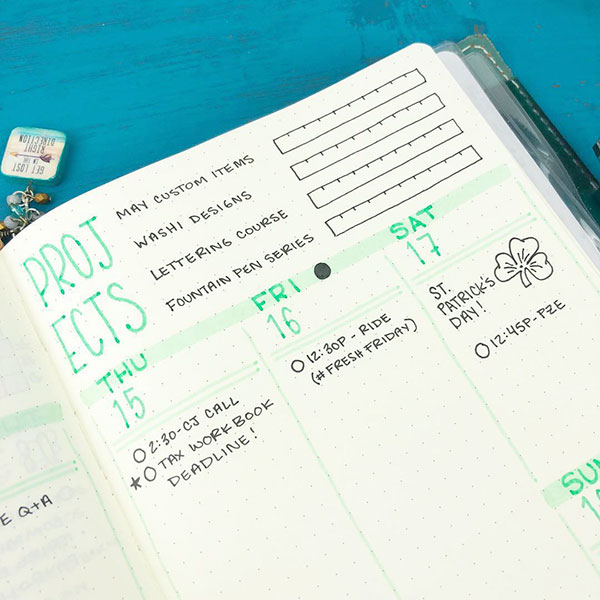 GET LOST
IN THE
RIGHT
DIRECTION
PROJ
ECTS
MAY CUSTOM ITEMS
WASHI DESIGNS
LETTERING COURSE
FOUNTAIN PEN SERIES
THU
15
2:30-CJ CALL
TAX WORKBOOK
DEADLINE!
FRI
16
12:30P - RIDE
(#FRESH FRIDAY)
SAT
17
ST.
PATRICK'S
DAY!
12:45P-PZE
SUN
E Q+A